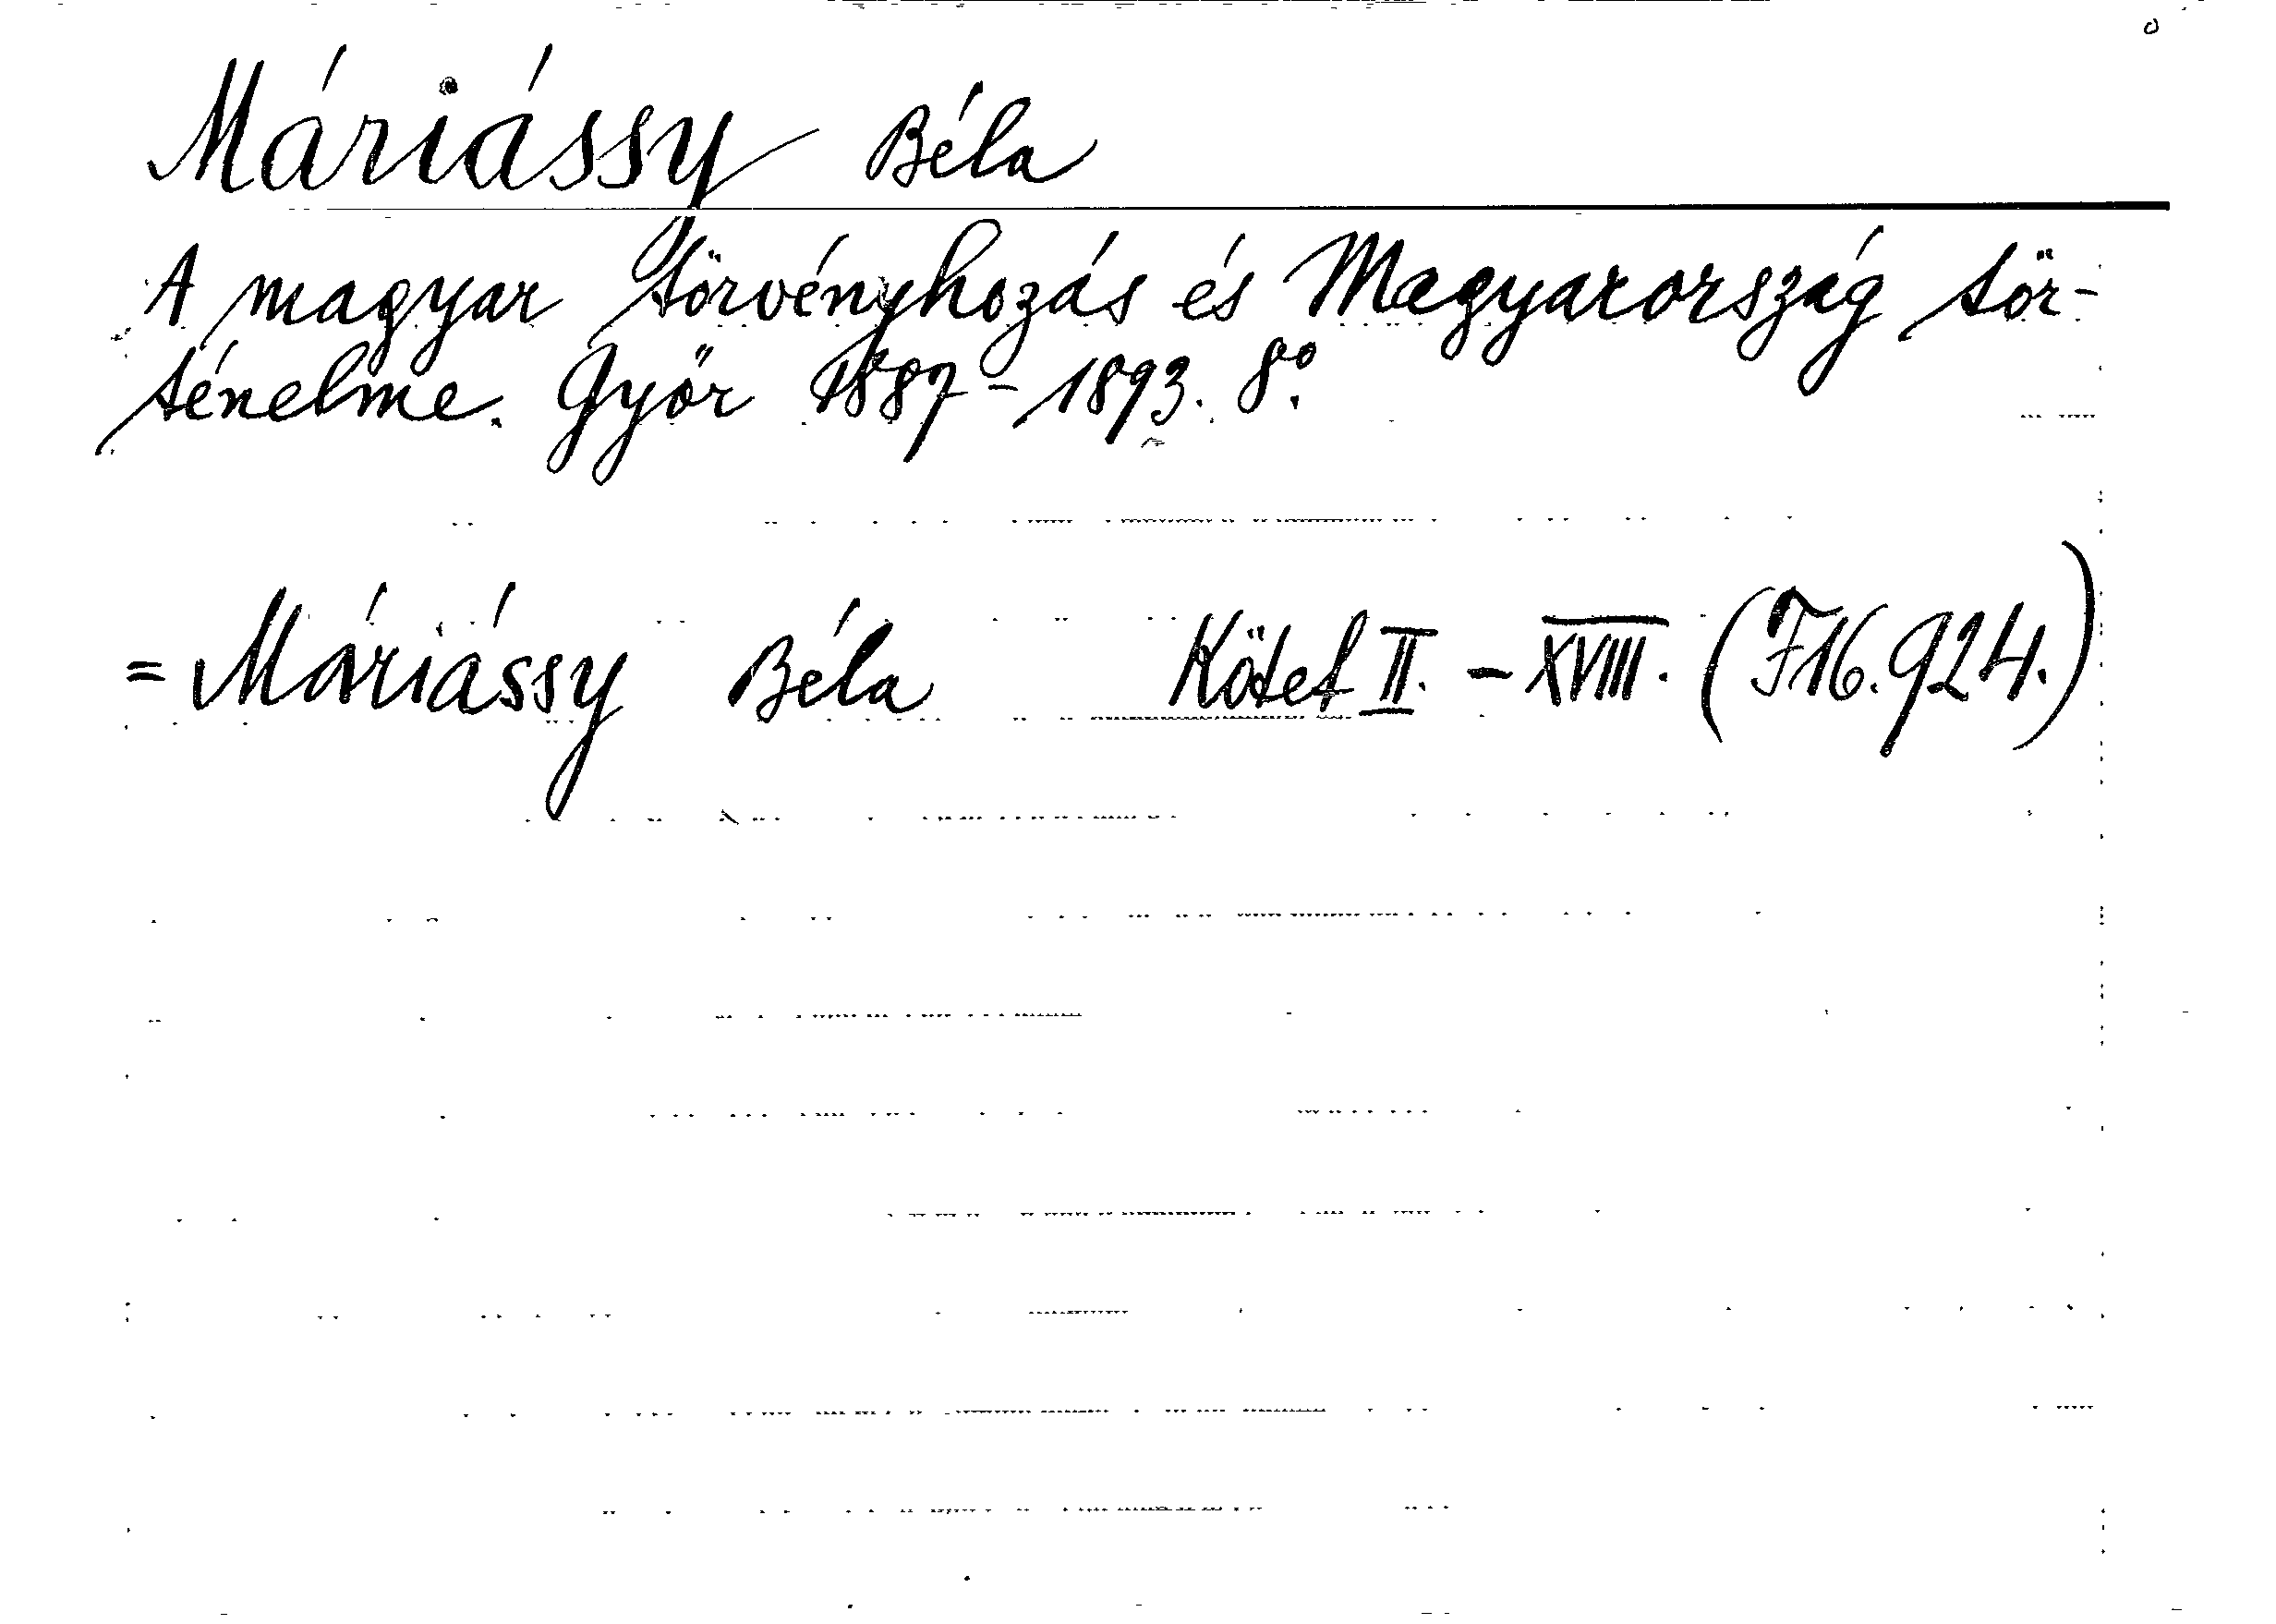 Máriássy Béla
A magyar törvényhozás és Magyarország tör-
ténelme. Győr 1887-1893. 8º.
= Máriássy Béla Kötet II. - XVIII. (F16.924.)